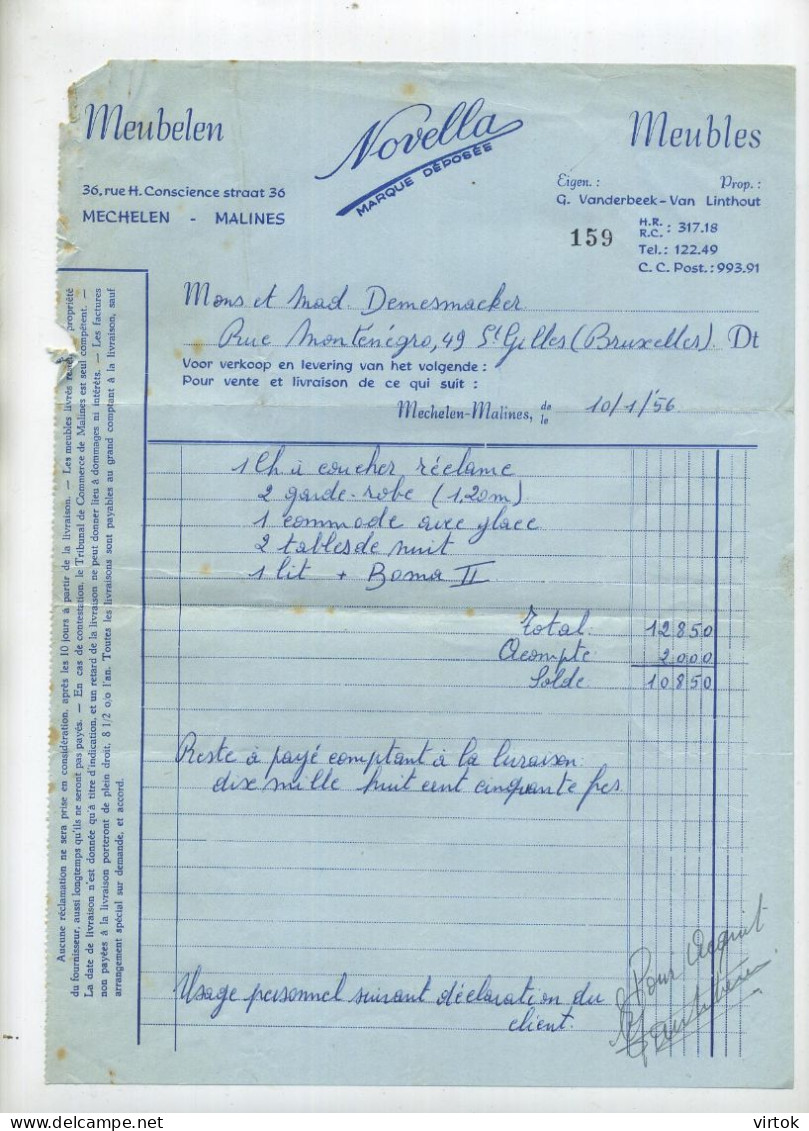 Meubelen
Novella
MARQUE DÉPOSÉE
Meubles
36, rue H. Conscience straat 36
MECHELEN - MALINES
Eigen.: Prop.:
G. Vanderbeek-Van Linthout
159
H.R.
R.C. : 317.18
Tel.: 122.49
C. C. Post.: 993.91
Mons et Mad. Demesmacker
Rue Monténégro, 49 St Gilles (Bruxelles). Dt
Voor verkoop en levering van het volgende :
Pour vente et livraison de ce qui suit :
Mechelen-Malines, de
le 10/1/56
1 Ch à coucher réclame
2 garde-robe (1.20m)
1 commode avec glace
2 tables de nuit
1 lit + Boma II
Total. 12850
Acompte 2000
Solde 10850
Reste à payé comptant à la livraison:
dix mille huit cent cinquante frs.
Usage personnel suivant déclaration du
client.
Pour Acquit
Aucune réclamation ne sera prise en considération, après les 10 jours à partir de la livraison. — Les meubles livrés propriété
du fournisseur, aussi longtemps qu'ils ne seront pas payés. — En cas de contestation, le Tribunal de Commerce de Malines est seul compétent. —
La date de livraison n'est donnée qu'à titre d'indication, et un retard de la livraison ne peut donner lieu à dommages ni intérêts. — Les factures
non payées à la livraison porteront de plein droit, 8 1/2 o/o l'an. Toutes les livraisons sont payables au grand comptant à la livraison, sauf
arrangement spécial sur demande, et accord.
virtok